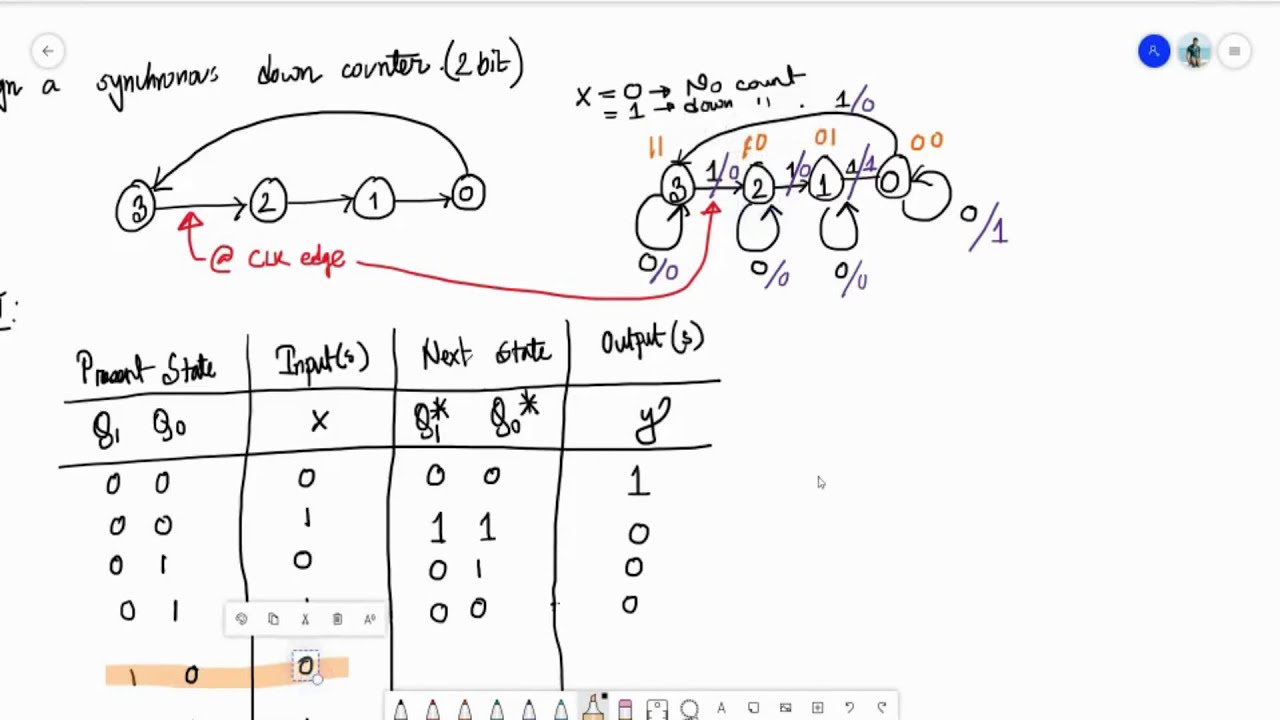 gn a synchronous down counter. (2 bit)
X = 0 → No count
= 1 → down " .
1/0
11 10 01 00
3 1/0 2 1/0 1 1/1 0
0/0 0/0 0/0 0/1
3 2 1 0
@ CLK edge
Present State Input(s) Next State Output(s)
Q1 Q0 X Q1* Q0* y
0 0 0 0 0 1
0 0 1 1 1 0
0 1 0 0 1 0
0 1 0 0 0
1 0 0
A